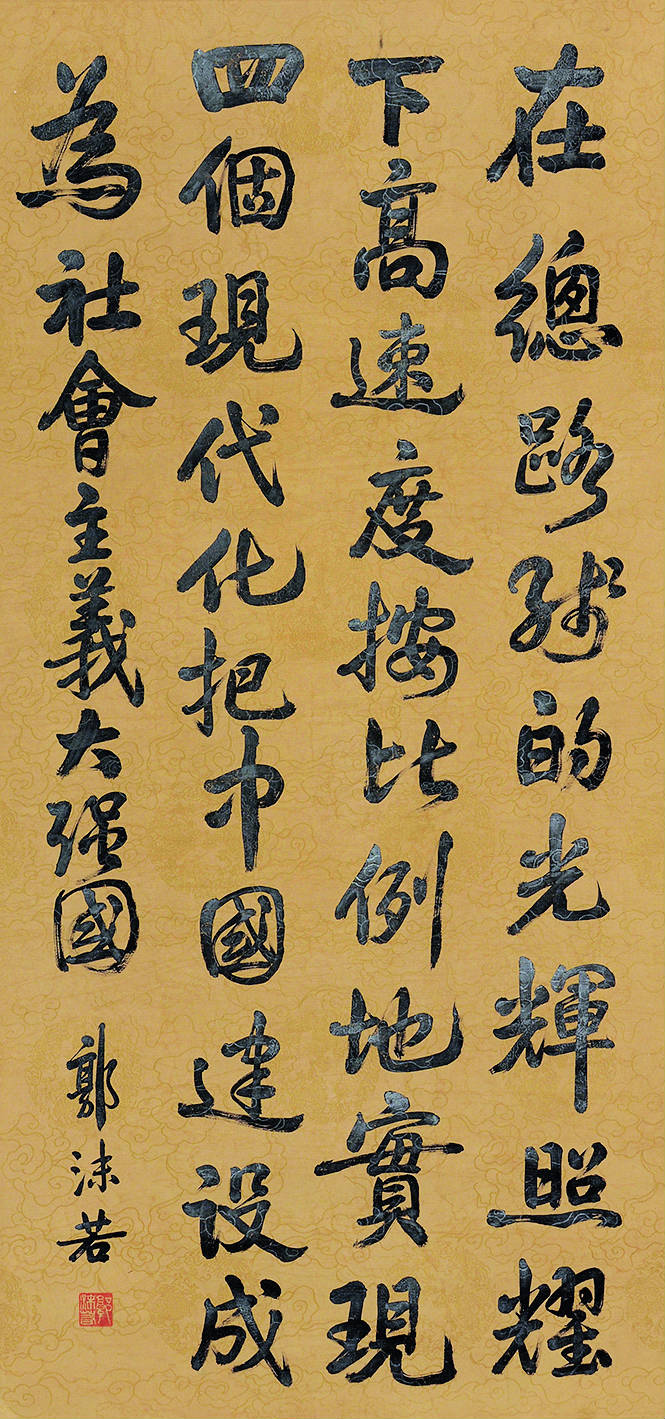 在總路线的光輝照耀
下高速度按比例地實現
四個現代化把中國建设成
為社會主義大强國
郭沫若
郭沫若